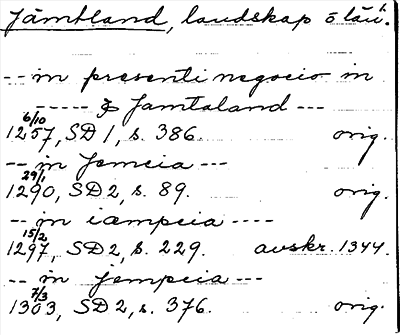 Jämtland, landskap o län.
-- in presenti negocio in
----- Jamtaland ---
6/10
1257, SD 1, s. 386. orig.
-- in Jemcia ---
29/1
1290, SD 2, s. 89. orig.
-- in iæmpcia ----
15/2
1297, SD 2, s. 229. avskr. 1344.
-- in jempcia ---
7/3
1303, SD 2, s. 376. orig.